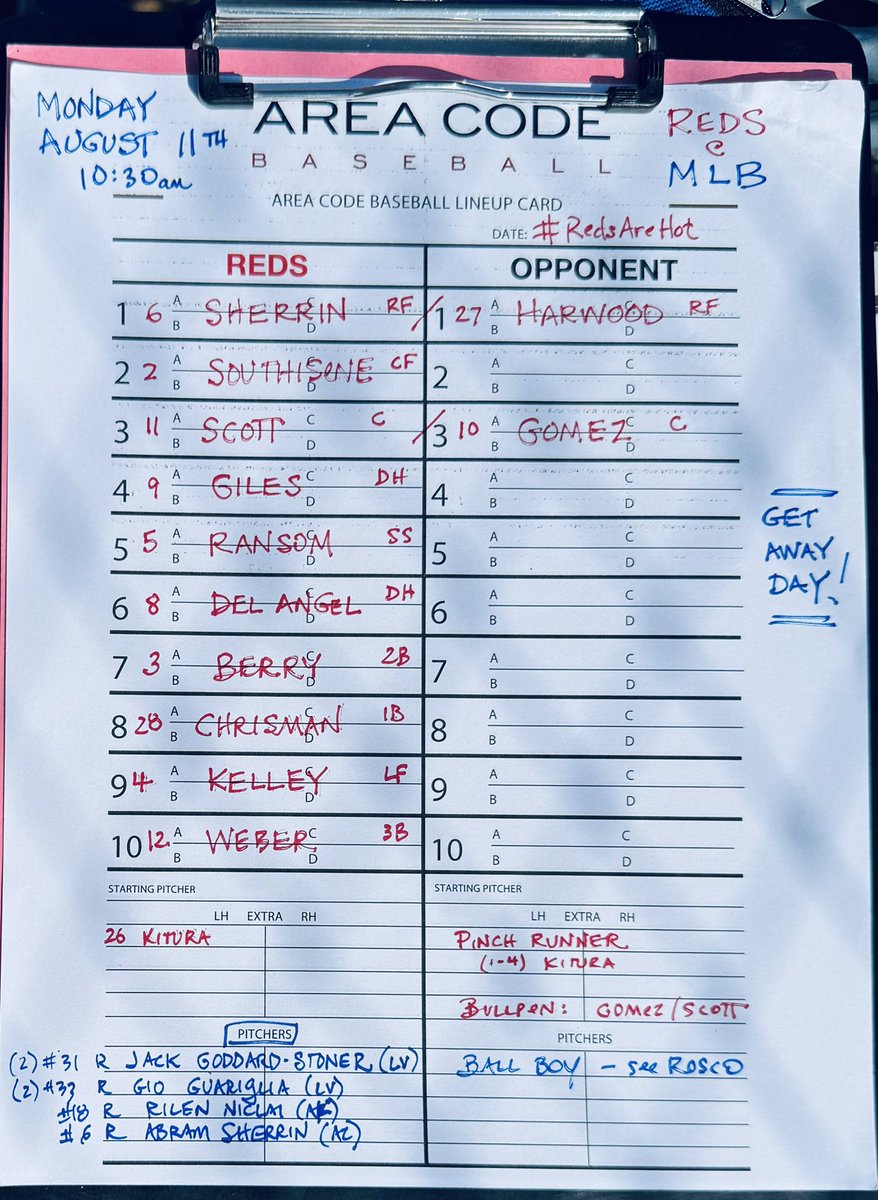 MONDAY
AUGUST 11TH
10:30am
AREA CODE
BASEBALL
REDS
@
MLB
AREA CODE BASEBALL LINEUP CARD
DATE: #RedsAreHot
REDS
1 6 A B SHERRIN C D RF
2 2 A B SOUTHISENE C D CF
3 11 A B SCOTT C D C
4 9 A B GILES C D DH
5 5 A B RANSOM C D SS
6 8 A B DEL ANGEL C D DH
7 3 A B BERRY C D 2B
8 28 A B CHRISMAN C D 1B
9 4 A B KELLEY C D LF
10 12 A B WEBER C D 3B
STARTING PITCHER
LH EXTRA RH
26 KITURA
PITCHERS
(2) #31 R JACK GODDARD-STONER (LV)
(2) #33 R GIO GUARIGLIA (LV)
#18 R RILEN NICLAI
#6 R ABRAM SHERRIN (AZ)
OPPONENT
1 27 A B HARWOOD C D RF
2 A B C D
3 10 A B GOMEZ C D C
4 A B C D
5 A B C D
6 A B C D
7 A B C D
8 A B C D
9 A B C D
10 A B C D
STARTING PITCHER
LH EXTRA RH
PINCH RUNNER
(1-4) KITURA
BULLPEN: GOMEZ/SCOTT
PITCHERS
BALL BOY - see ROSCO
GET
AWAY
DAY!